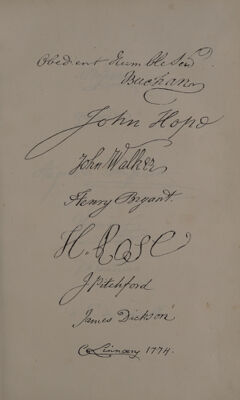 Obedient Humble Ser.
Buchan
John Hope
John Walker
Henry Bryant.
H. Rose
J. Pitchford
James Dickson
C Linnæus 1774.